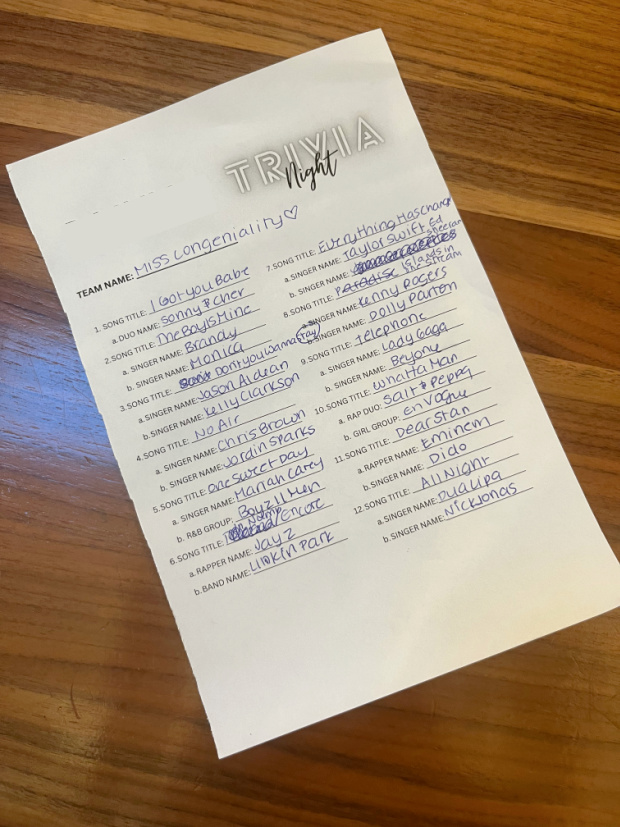 TRIVIA
Night
TEAM NAME: MISS Longeniality♡
1. SONG TITLE: I Got you Babe
a. DUO NAME: Sonny & Cher
2. SONG TITLE: The Boy Is Mine
a. SINGER NAME: Brandy
b. SINGER NAME: Monica
3. SONG TITLE: Dont you wanna stay
a. SINGER NAME: Jason Aldean
b. SINGER NAME: Kelly Clarkson
4. SONG TITLE: No Air
a. SINGER NAME: Chris Brown
b. SINGER NAME: Jordin Sparks
5. SONG TITLE: one sweet Day
a. SINGER NAME: Mariah Carey
b. R&B GROUP: Boyz II Men
6. SONG TITLE: Numb/Encore
a. RAPPER NAME: Jay Z
b. BAND NAME: Linkin Park
7. SONG TITLE: Everything Has Change
a. SINGER NAME: Taylor Swift Ed
b. SINGER NAME: Sheeran
8. SONG TITLE: Islands in the Stream
a. SINGER NAME: Kenny Rogers
b. SINGER NAME: Dolly Parton
9. SONG TITLE: Telephone
a. SINGER NAME: Lady Gaga
b. SINGER NAME: Beyonce
10. SONG TITLE: Whatta Man
a. RAP DUO: Salt & Peppa
b. GIRL GROUP: en Vogue
11. SONG TITLE: Dear Stan
a. RAPPER NAME: Eminem
b. SINGER NAME: Dido
12. SONG TITLE: All Night
a. SINGER NAME: Dua Lipa
b. SINGER NAME: Nick Jonas